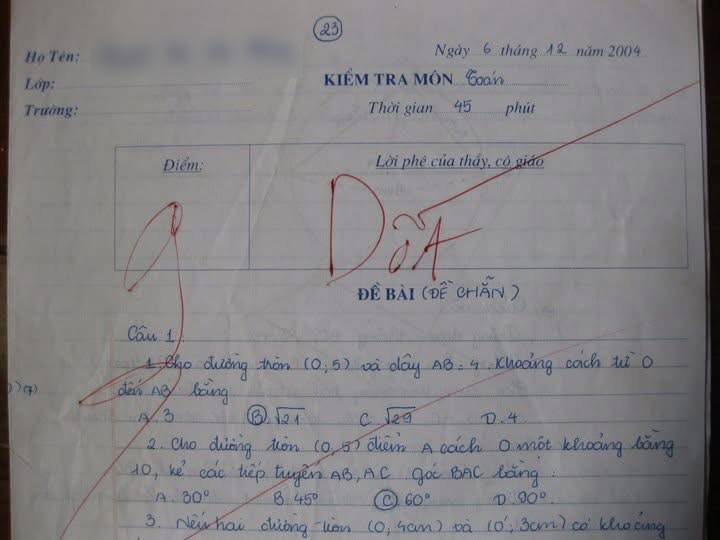 23
Họ Tên:
Ngày 6 tháng 12 năm 2004
Lớp:
KIỂM TRA MÔN Toán
Trường:
Thời gian 45 phút
Điểm:
Lời phê của thầy, cô giáo
9
ĐỀ BÀI (ĐỀ CHẴN)
Câu 1
1. Cho đường tròn (O,5) và dây AB = 4. Khoảng cách từ O
đến AB bằng
A. 3 B. √21 C. √29 D. 4
2. Cho đường tròn (O,5) điểm A cách O một khoảng bằng
10, kẻ các tiếp tuyến AB, AC góc BAC bằng:
A. 30° B. 45° C. 60° D. 90°
3. Nếu hai đường tròn (O, 4cm) và (O', 3cm) có khoảng